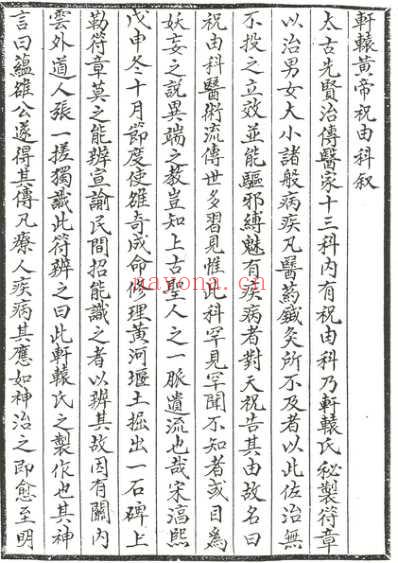 軒轅黃帝祝由科叙
太古先賢治傳醫家十三科内有祝由科乃軒轅氏秘製符章
以治男女大小諸般病疾凡醫藥鍼灸所不及者以此佐治無
不投之立效並能驅邪縛魅有疾病者對天祝告其由故名曰
祝由科醫術流傳世多習見惟此科罕見罕聞不知者或目為
妖妄之說異端之教豈知上古聖人之一脈遺流也哉宋淳熙
戊申冬十月節度使雄奇成命修理黃河堰土掘出一石碑上
勒符章莫之能辨宣諭民間招能識之者以辨其故因有關内
雲外道人張一搓獨識此符辨之曰此軒轅氏之製作也其神
言曰蘊雄公遂得其傳凡療人疾病其應如神治之即愈至明
nayona.cn